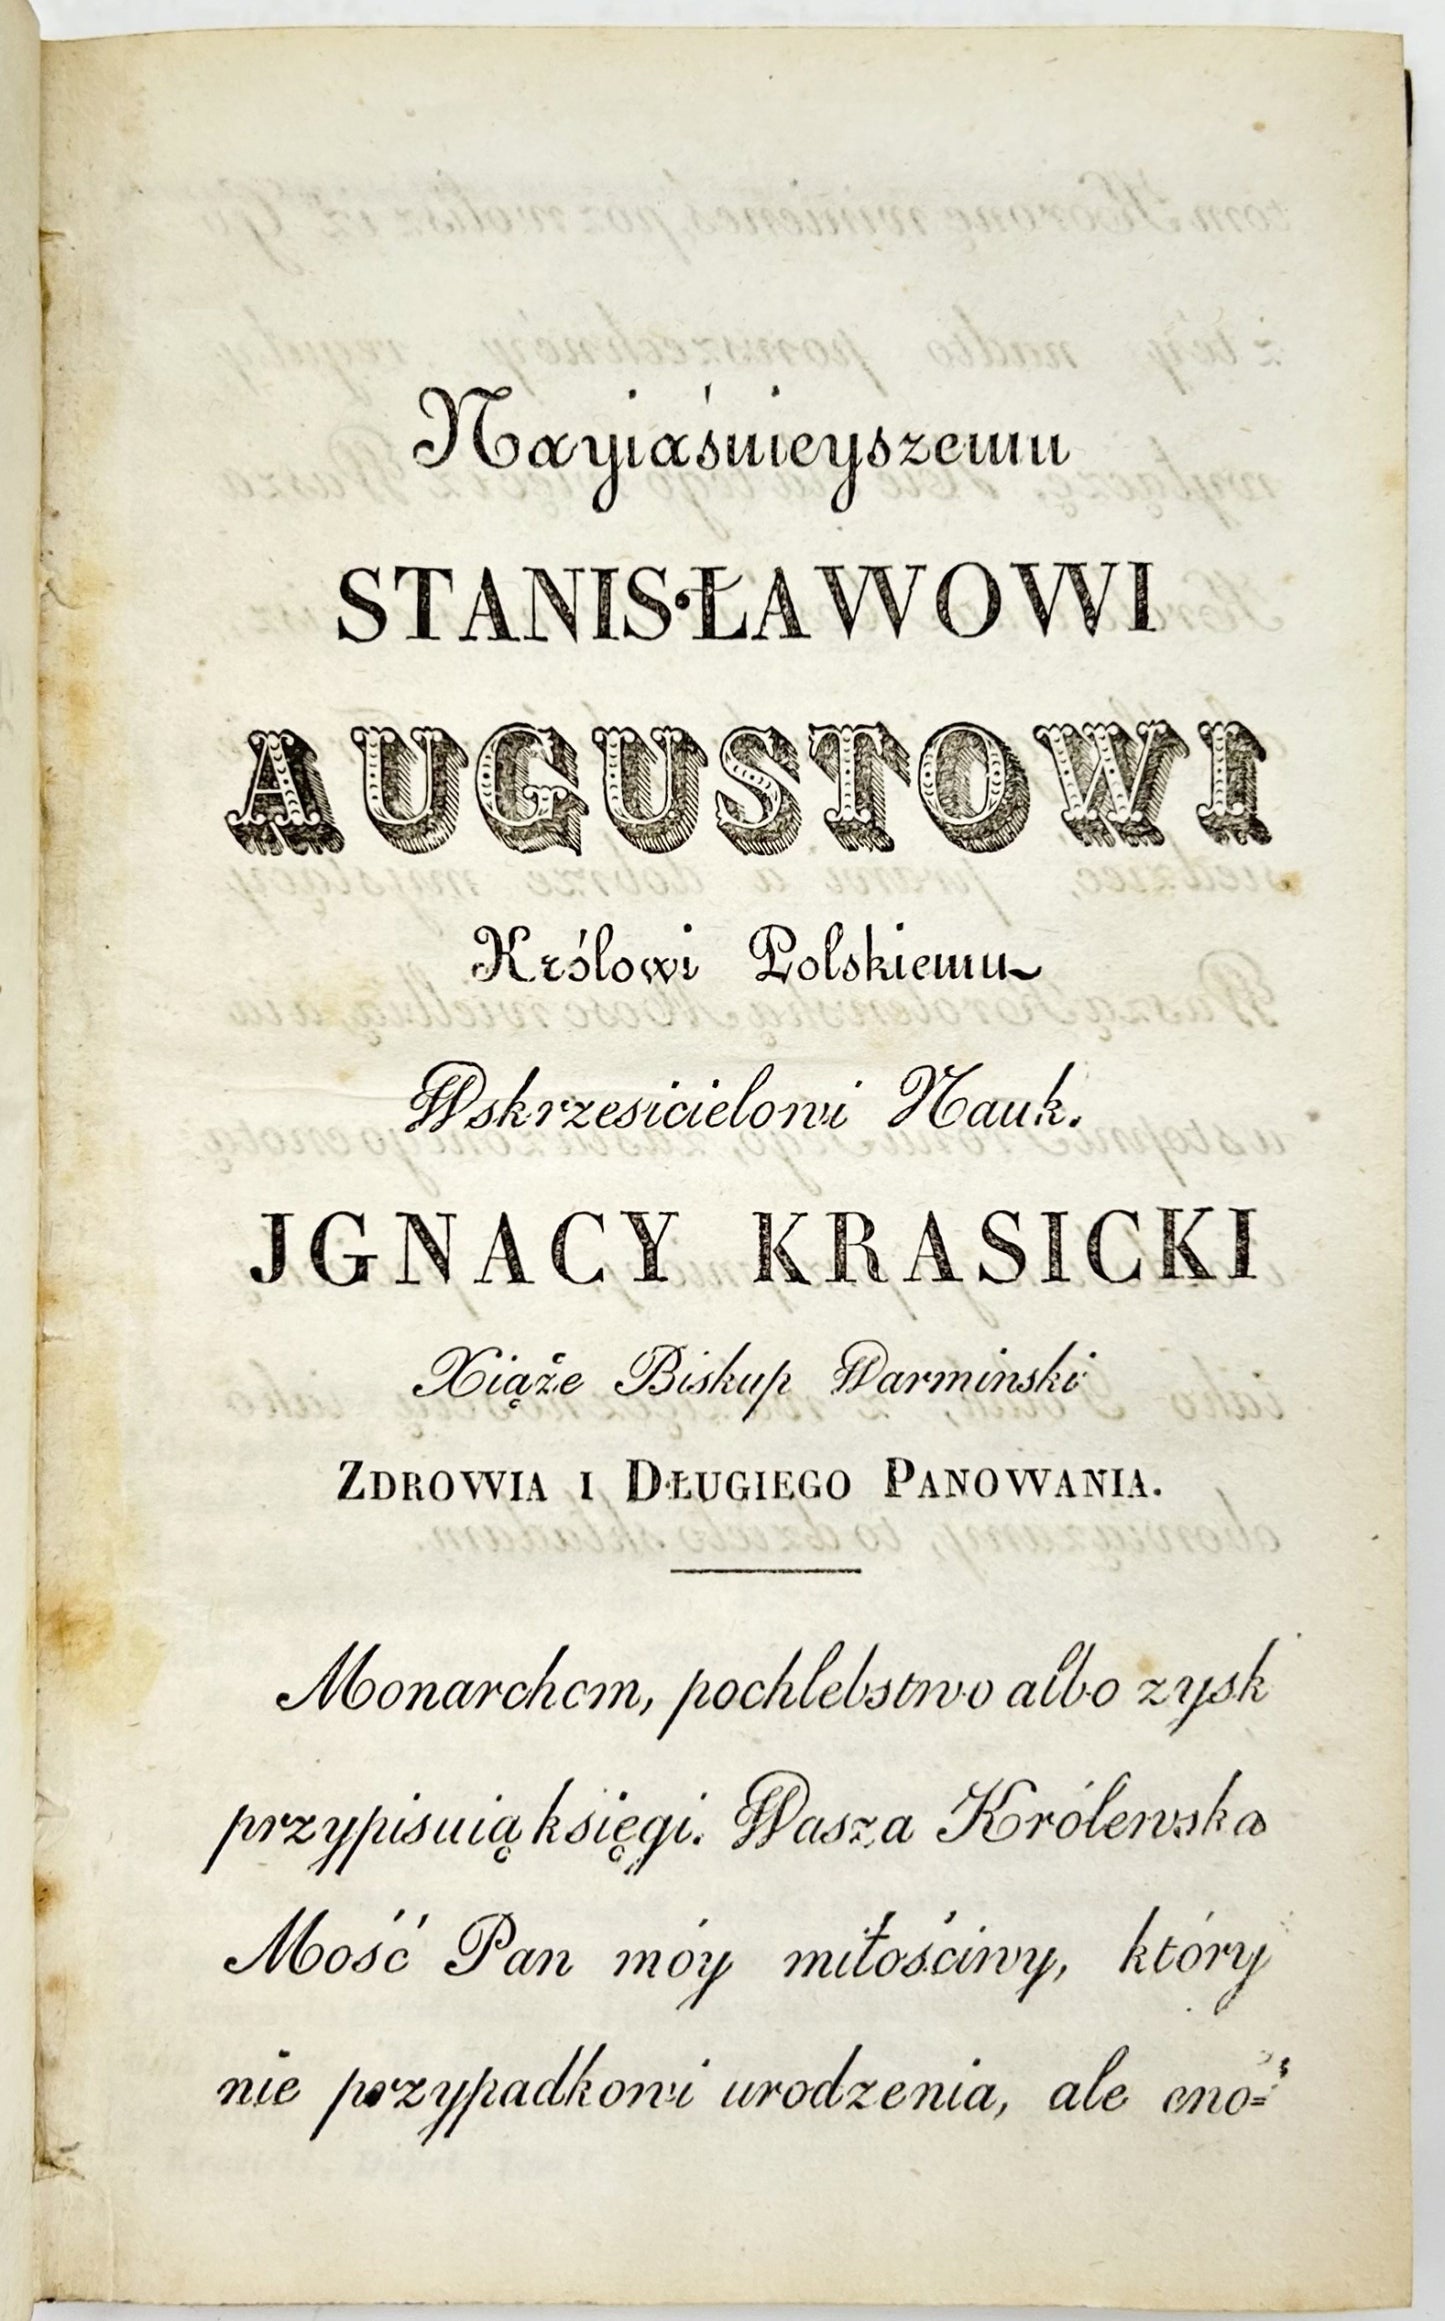 Nayiaśnieyszemu
STANISŁAWOWI
AUGUSTOWI
Królowi Polskiemu
Wskrzesicielowi Nauk.
JGNACY KRASICKI
Xiąże Biskup Warminski
ZDROWIA I DŁUGIEGO PANOWANIA.
Monarchom, pochlebstwo albo zysk
przypisuią księgi. Wasza Królewska
Mość Pan móy miłościwy, który
nie przypadkowi urodzenia, ale cno=